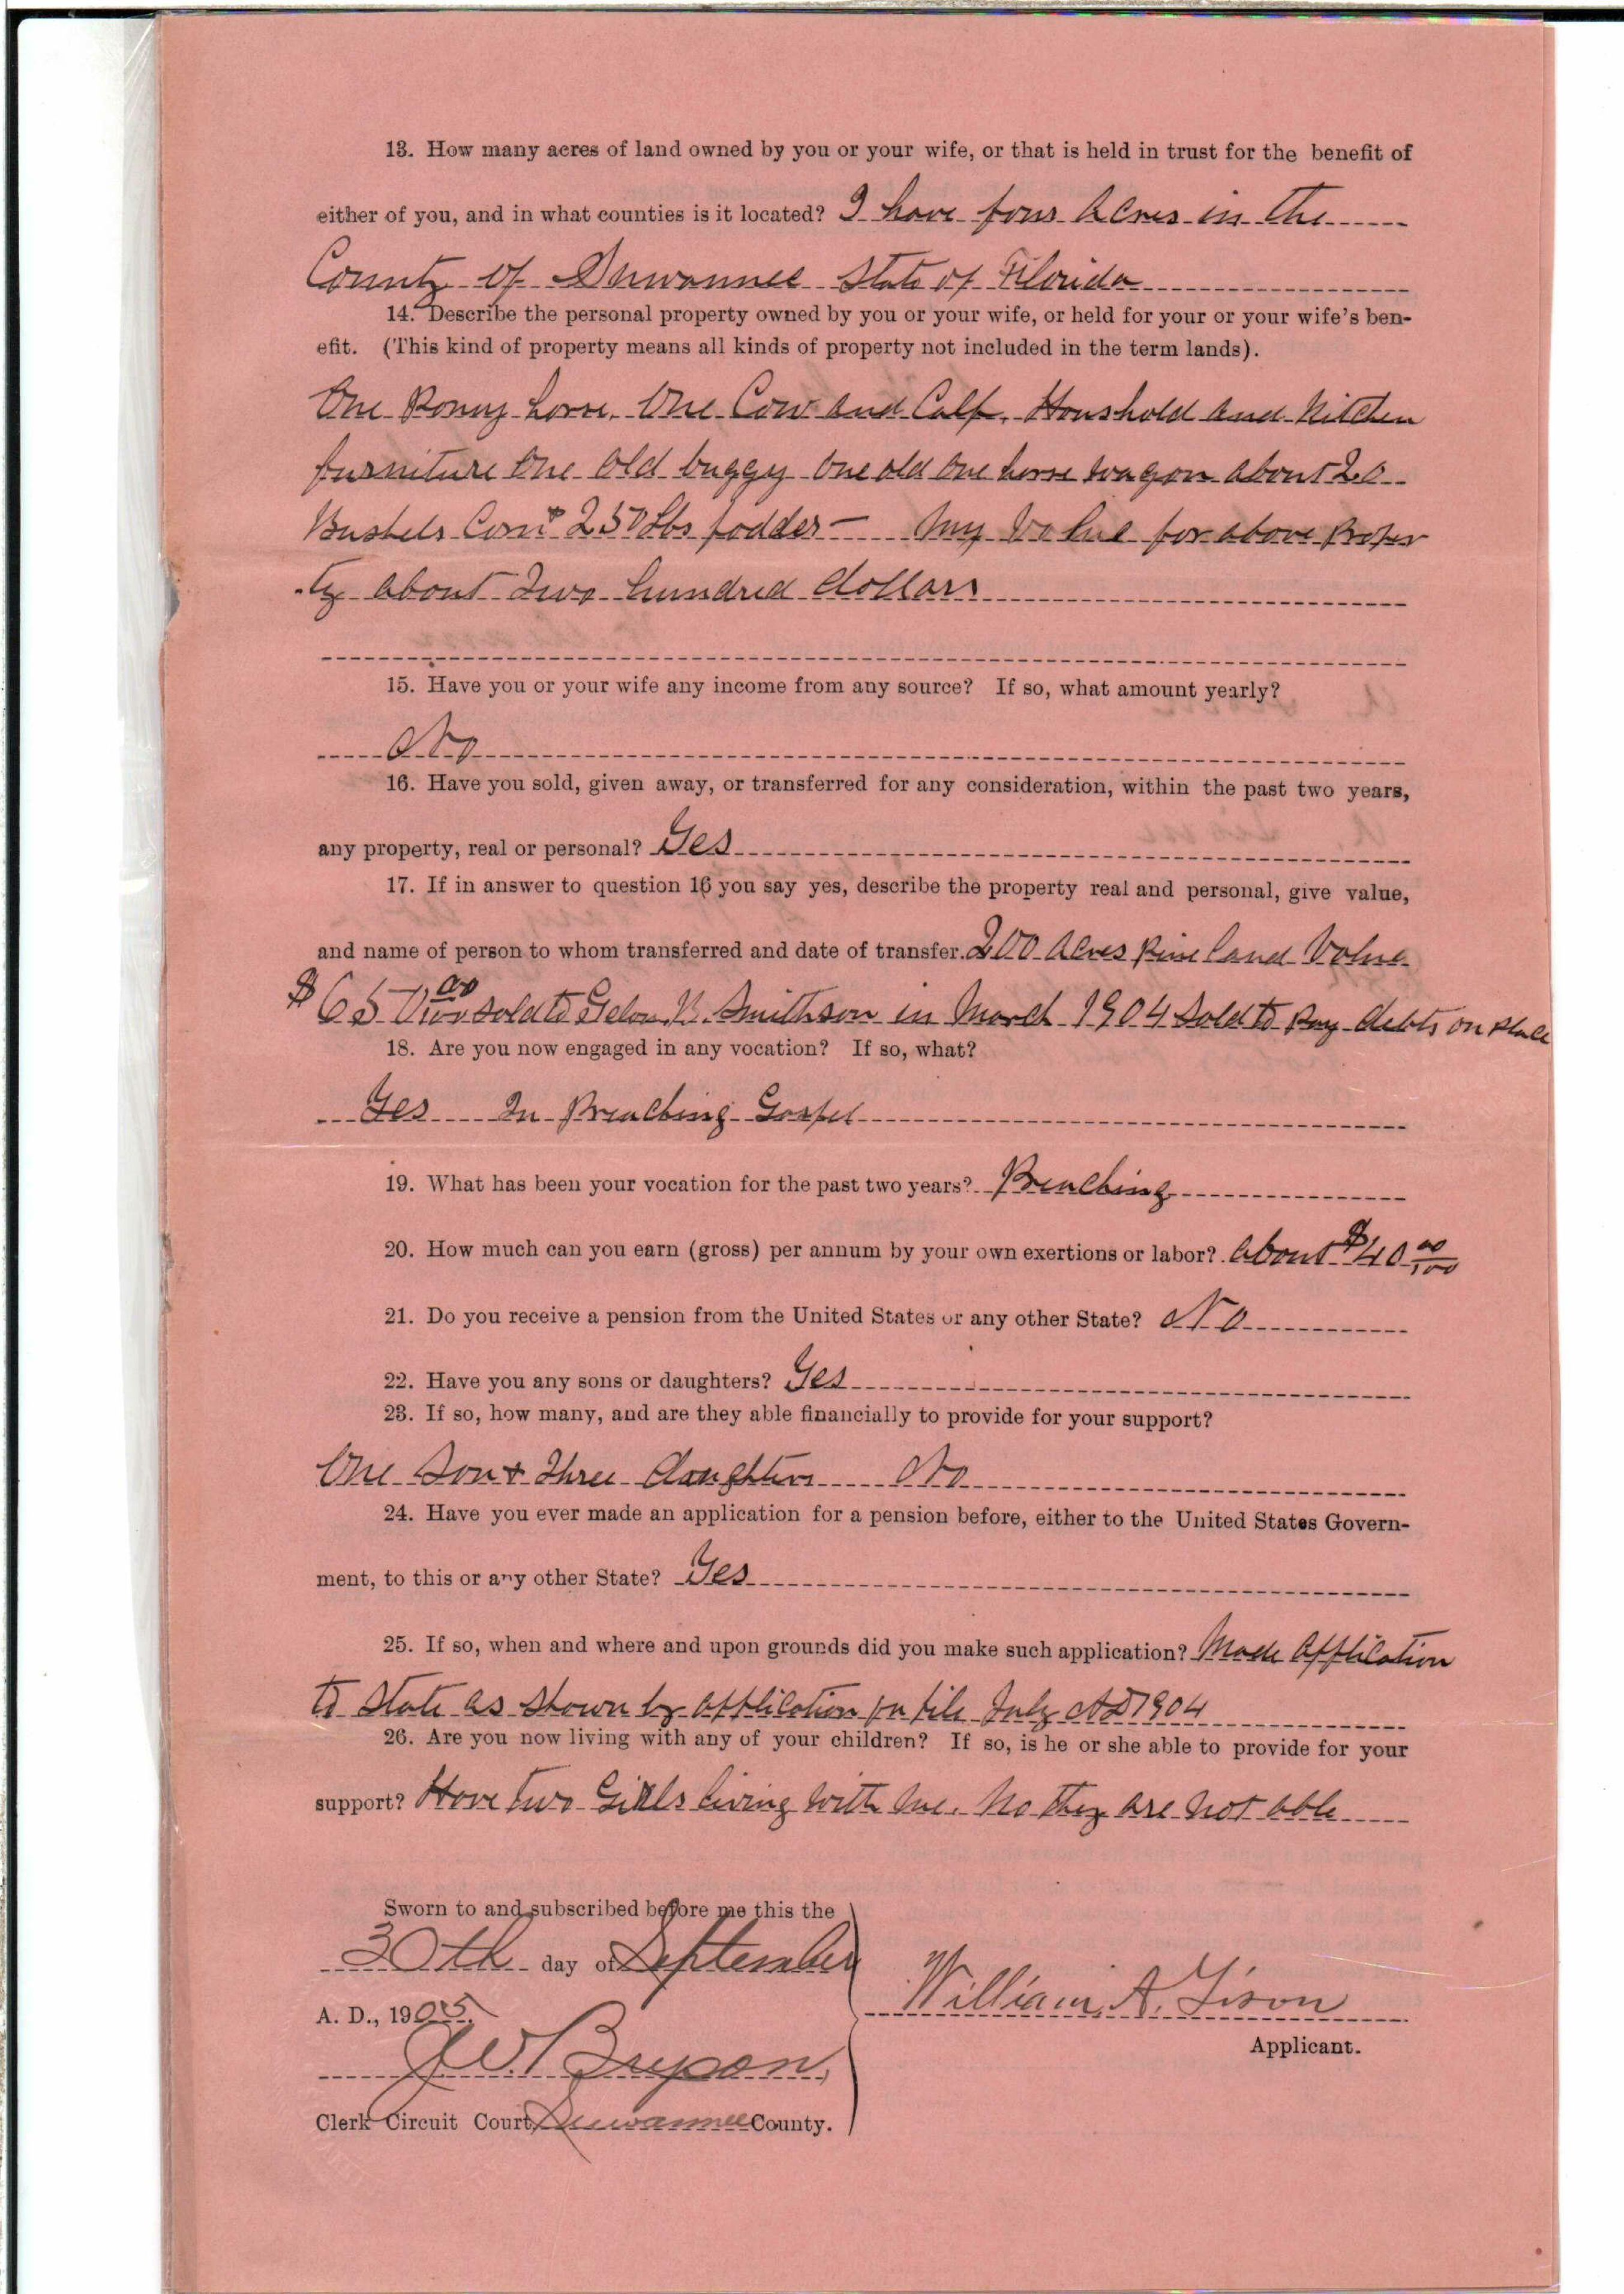 13. How many acres of land owned by you or your wife, or that is held in trust for the benefit of
either of you, and in what counties is it located? I have four acres in the
County of Suwannee State of Florida
14. Describe the personal property owned by you or your wife, or held for your or your wife's ben-
efit. (This kind of property means all kinds of property not included in the term lands).
One Pony horse. One Cow and Calf. Houshold and Kitchen
furniture One Old buggy one old one horse wagon about 20
Bushels Corn & 250 Lbs fodder — My Value for above proper
-ty about Two hundred dollars
15. Have you or your wife any income from any source? If so, what amount yearly?
No
16. Have you sold, given away, or transferred for any consideration, within the past two years,
any property, real or personal? Yes
17. If in answer to question 16 you say yes, describe the property real and personal, give value,
and name of person to whom transferred and date of transfer. 200 acres pine land Value
$650 00/100 sold to Smithson in March 1904 sold to pay debts on place
18. Are you now engaged in any vocation? If so, what?
Yes In Preaching Gospel
19. What has been your vocation for the past two years? Preaching
20. How much can you earn (gross) per annum by your own exertions or labor? About $40 00/100
21. Do you receive a pension from the United States or any other State? No
22. Have you any sons or daughters? Yes
23. If so, how many, and are they able financially to provide for your support?
One Son & Three daughters No
24. Have you ever made an application for a pension before, either to the United States Govern-
ment, to this or any other State? Yes
25. If so, when and where and upon grounds did you make such application? Made Application
to State as shown by application on file July AD 1904
26. Are you now living with any of your children? If so, is he or she able to provide for your
support? Have two Girls living with me. No they are not able
Sworn to and subscribed before me this the
30th day of September
A. D., 1905.
William A. Tison
Applicant.
J.W. Bryson,
Clerk Circuit Court Suwannee County.